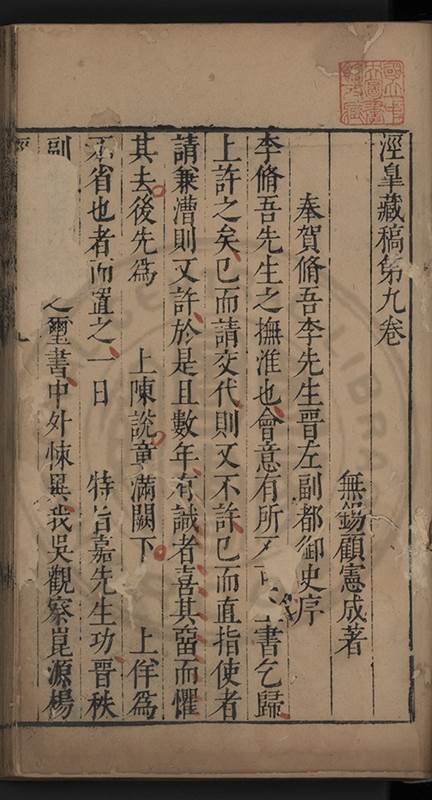 涇臯藏稿第九卷
無錫顧憲成著
奉賀脩吾李先生晋左副都御史序
李脩吾先生之撫淮也會意有所不 上書乞歸
上許之矣已而請交代則又不許已而直指使者
請兼漕則又許於是且數年有識者喜其留而懼
其去後先爲 上陳說章滿闕下 上佯爲
不省也者而置之一日 特旨嘉先生功晋秩
副 之璽書中外悚異我吳觀察崑源楊